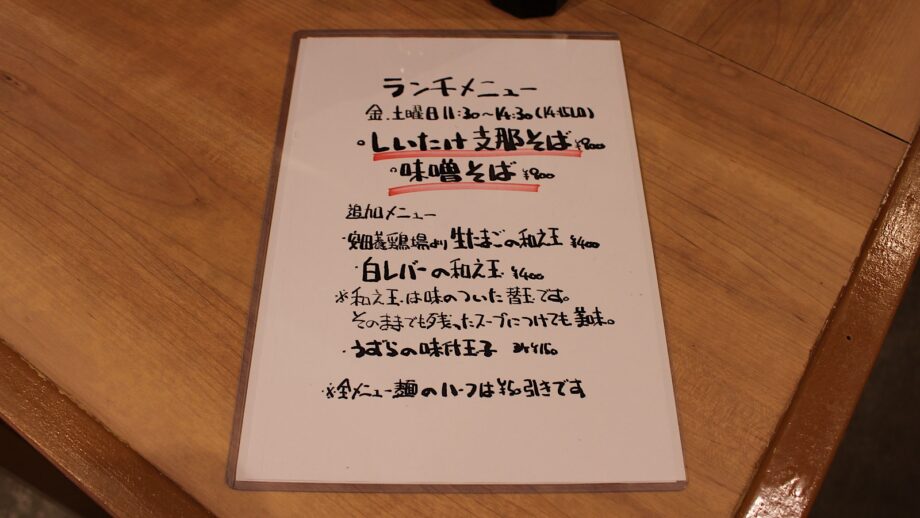 ランチメニュー
金.土曜日11:30〜14:30(14:15LO)
○しいたけ支那そば ¥800
○味噌そば ¥800
追加メニュー
・安田養鶏場より生たまごの和え玉 ¥400
・白レバーの和え玉 ¥400
※和え玉は味のついた替玉です。
そのままでも残ったスープにつけても美味。
・うずらの味付玉子 ¥150
※全メニュー麺のハーフは¥50引きです